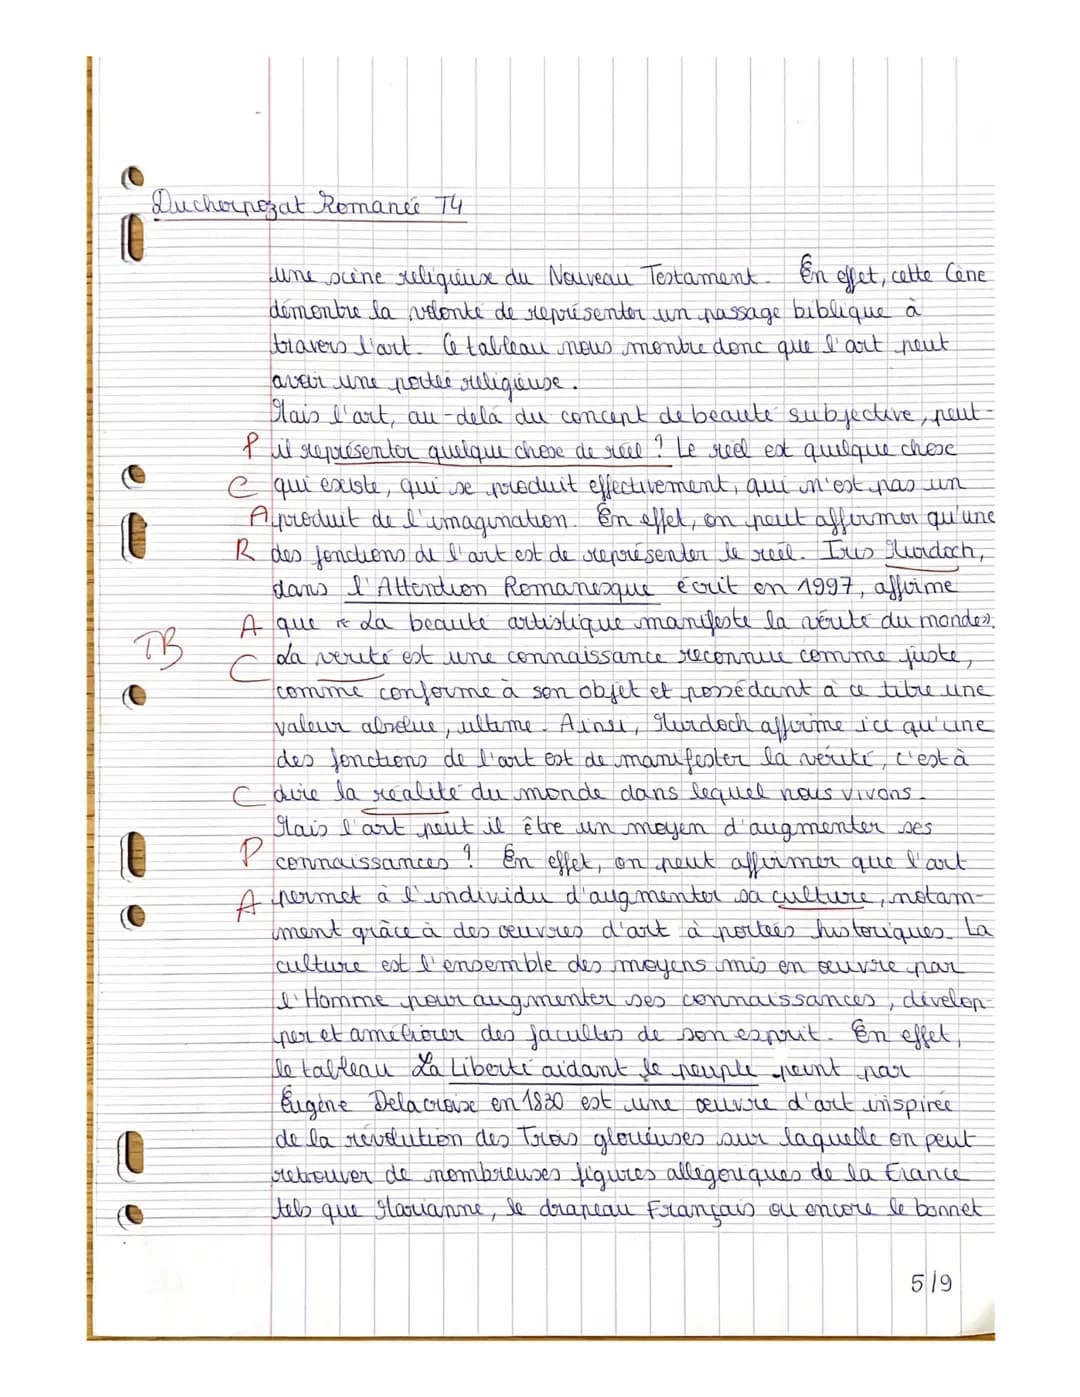 Duchornozat Romanée T4
une scène religieuse du Nouveau Testament. En effet, cette Cène
démontre la volonté de représenter un passage biblique à
travers l'art. Ce tableau nous montre donc que l'art peut
avoir une portée religieuse.
Mais l'art, au-delà du concept de beauté subjective, peut-
P il représenter quelque chose de réel ? Le réel est quelque chose
C qui existe, qui se produit effectivement, qui n'est pas un
A produit de l'imagination. En effet, on peut affirmer qu'une
R des fonctions de l'art est de représenter le réel. Iris Murdoch,
dans l'Attention Romanesque écrit en 1997, affirme
A que « La beauté artistique manifeste la vérité du monde».
TB C La vérité est une connaissance reconnue comme juste,
comme conforme à son objet et possédant à ce titre une
valeur absolue, ultime. Ainsi, Murdoch affirme ici qu'une
des fonctions de l'art est de manifester la vérité, c'est à
C dire la réalité du monde dans lequel nous vivons.
Mais l'art peut il être un moyen d'augmenter ses
P connaissances ? En effet, on peut affirmer que l'art
A permet à l'individu d'augmenter sa culture, notam-
ment grâce à des œuvres d'art à portées historiques. La
culture est l'ensemble des moyens mis en œuvre par
l'Homme pour augmenter ses connaissances, dévelop-
per et améliorer des facultés de son esprit. En effet,
le tableau La Liberté aidant le peuple peint par
Eugène Delacroix en 1830 est une œuvre d'art inspirée
de la révolution des Trois glorieuses sur laquelle on peut
retrouver de nombreuses figures allégoriques de la France
tels que Marianne, le drapeau Français ou encore le bonnet
5/9